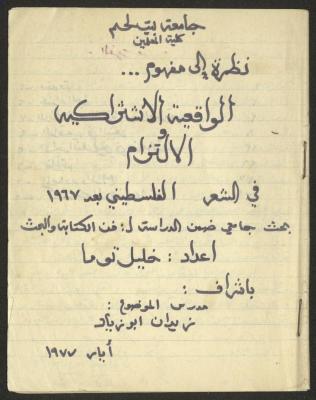 جامعة بيت لحم
كلية المعلمين
نظرة إلى مفهوم ...
الواقعية الاشتراكية
و
الالتزام
في الشعر الفلسطيني بعد ١٩٦٧
بحث جامعي ضمن الدراسة لـ: فن الكتابة والبحث
اعداد : خليل توما
باشراف :
مدرس الموضوع :
زيدان ابوزياد
أيار ١٩٧٧